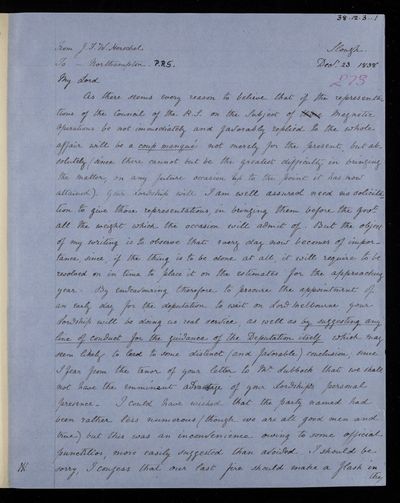 38.12.3..1
From J. F. W. Herschel.
To – Northampton. P.R.S.
Slough.
Decr 23 1838
273
My Lord
As there seems every reason to believe that if the representa-
tions of the Council of the R.S. on the Subject of Magnetic
operations be not immediately and favorably replied to the whole
affair will be a coup manqué not merely for the present, but ab-
solutely (since there cannot but be the greatest difficulty in bringing
the matter, on any future occasion up to the point it has now
attained). Your Lordship will I am well assured need no solicita-
tion to give those representations, in bringing them before the govt
all the weight which the occasion will admit of. But the object
of my writing is to observe that every day now becomes of impor-
tance, since, if the thing is to be done at all, it will require to be
resolved on in time to place it on the estimates for the approaching
year. By endeavouring therefore to procure the appointment of
an early day for the deputation to wait on Lord Melbourne your
Lordship will be doing us real service as well as by suggesting any
line of conduct for the guidance of the Deputation itself which may
seem likely to lead to some distinct (and favorable) conclusion, since
I fear from the tenor of your letter to Mr Lubbock that we shall
not have the eminent advantage of your Lordships personal
presence. I could have wished that the party named had
been rather less numerous (though we are all good men and
true) but this was an inconvenience owing to some official
punctilios, more easily suggested than avoided. I should be
sorry, I confess that our last fire should make a flash in
the